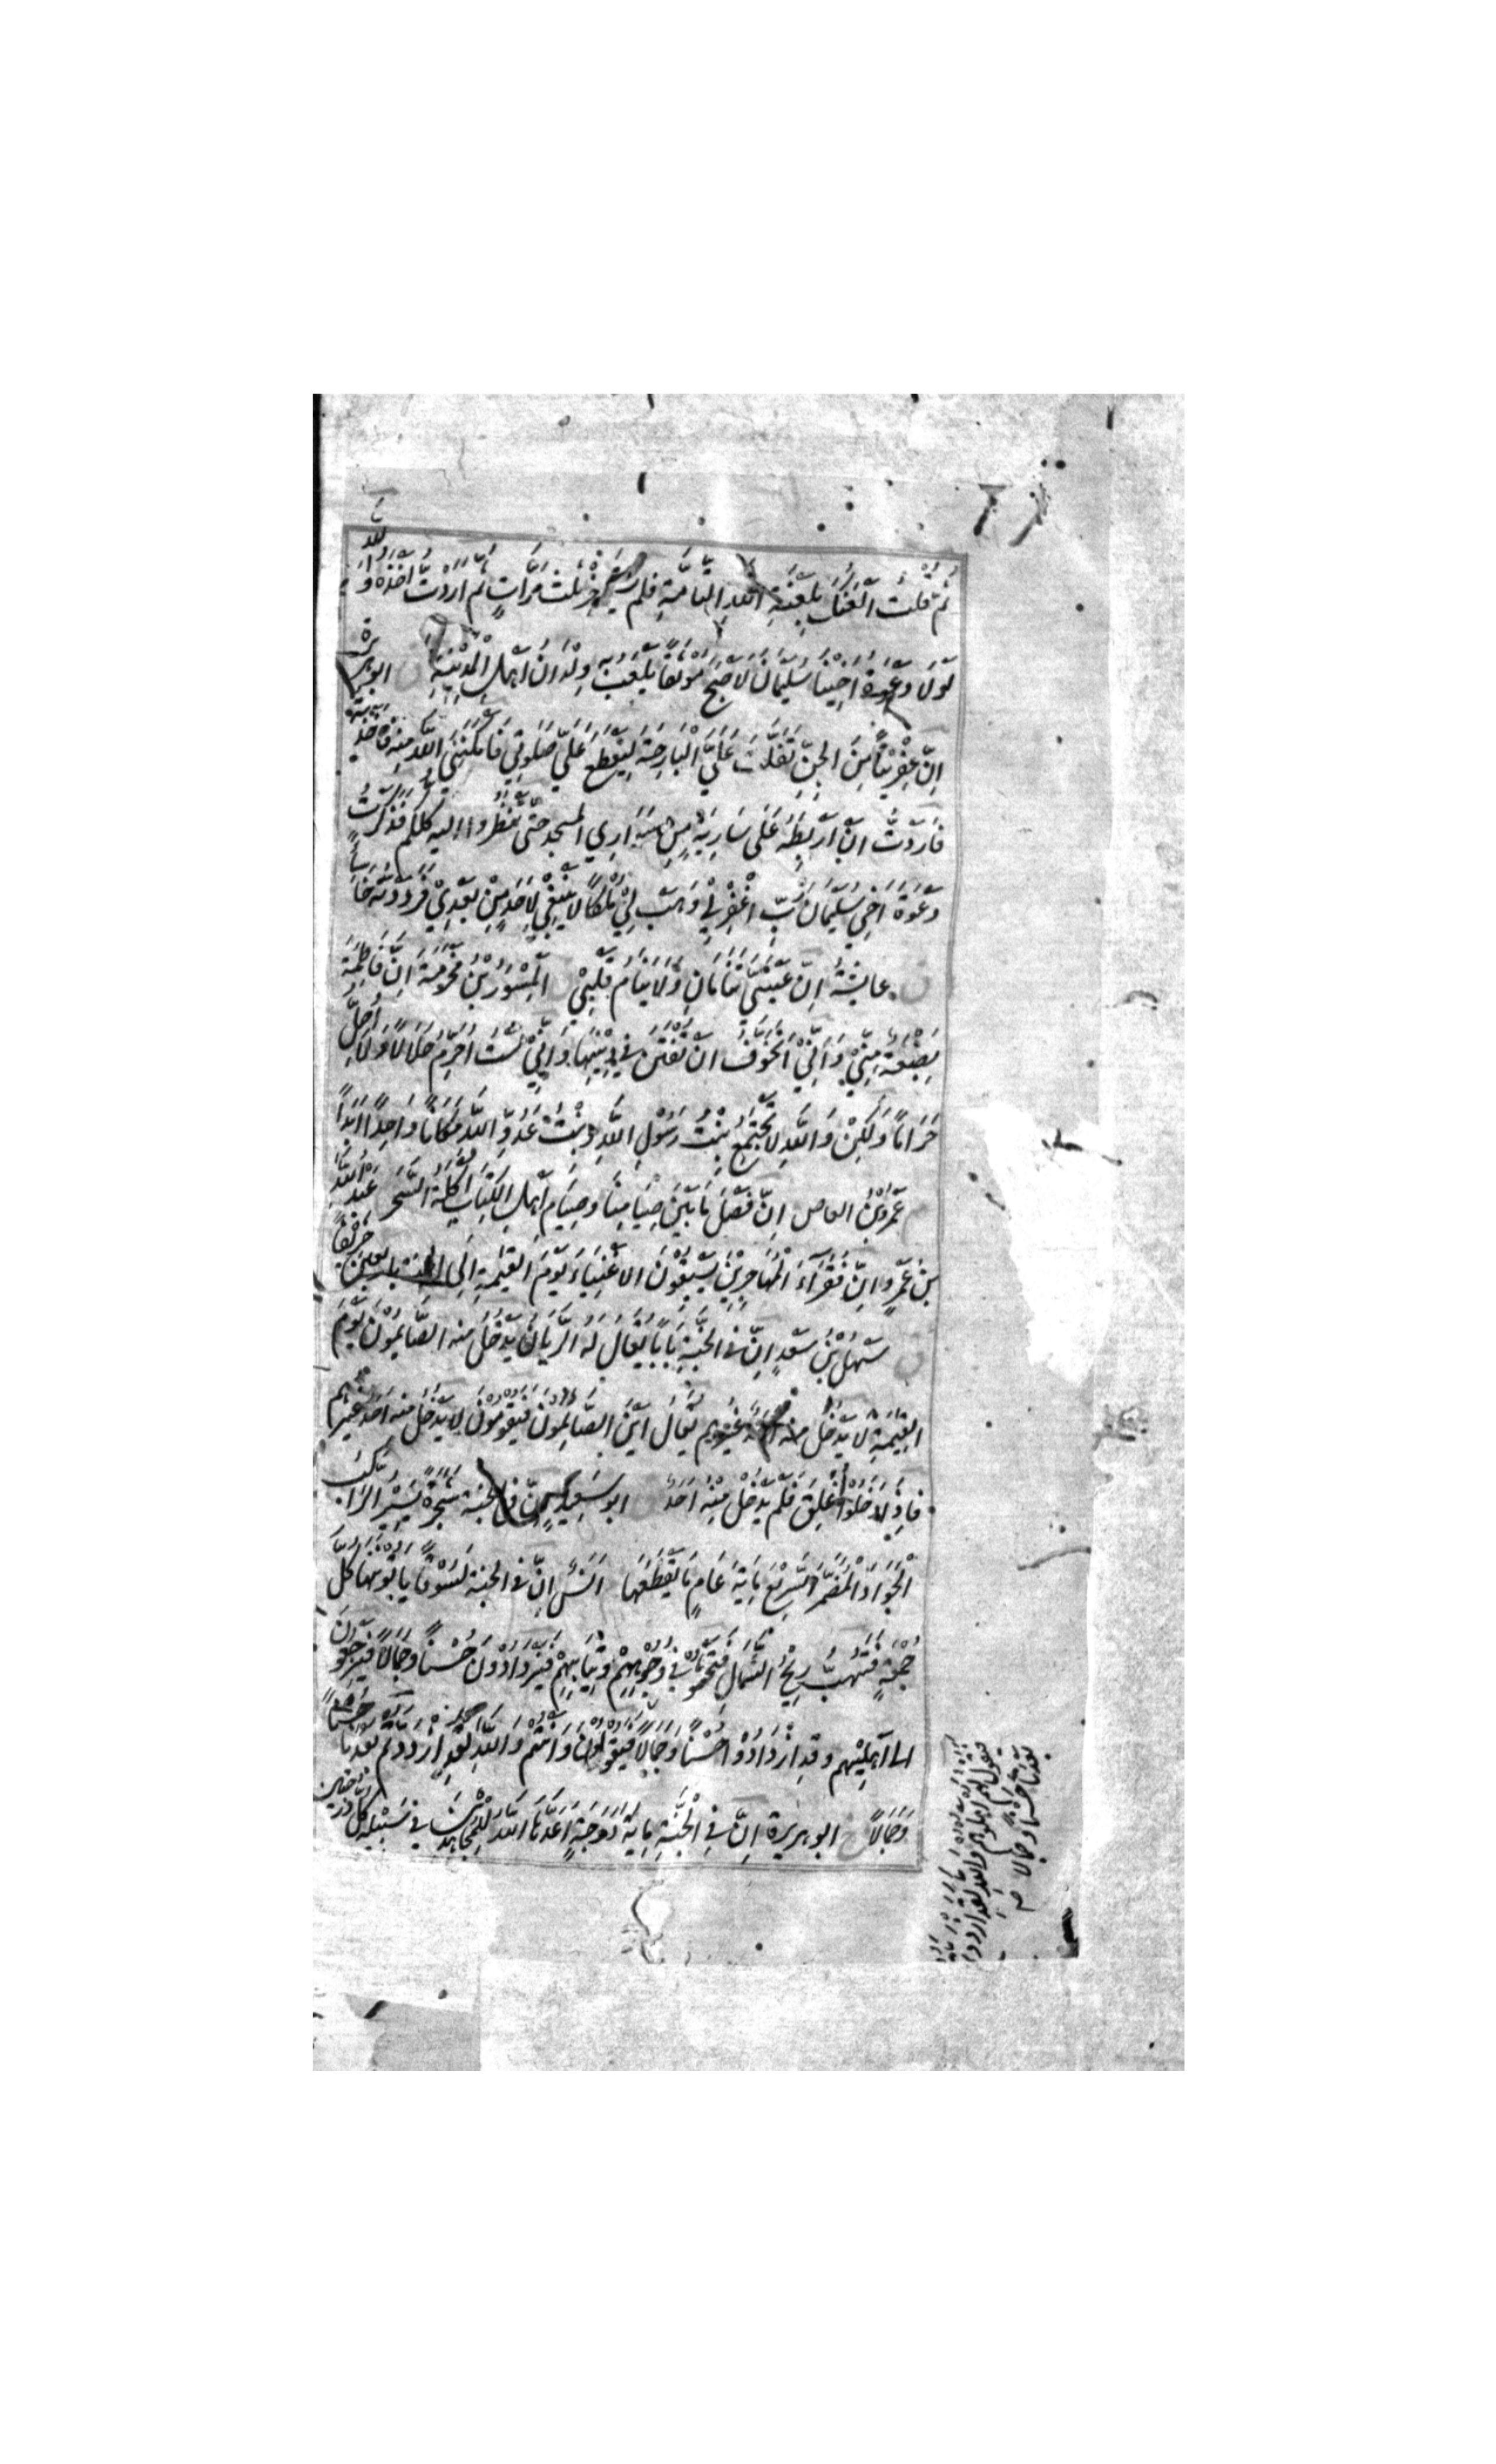 ثُمَّ قُلْتُ أَلْعَنُكَ بِلَعْنَةِ اللهِ التَّامَّةِ فلم يستأخر ثلث مَرَّاتٍ ثُمَّ اَرَدْتُ اَخْذَهُ وَاللهِ
لَوْلَا دَعْوَةُ اَخِيْنَا سُلَيْمَانَ لَاَصْبَحَ مُوْثَقًا يَلْعَبُ بِهِ وِلْدَانُ اَهْلِ الْمَدِيْنَةِ ابوهريرة
اِنَّ عِفْرِيْتًا مِنَ الْجِنِّ تَفَلَّتَ عَلَيَّ الْبَارِحَةَ لِيَقْطَعَ عَلَيَّ صَلوتِي فَاَمْكَنَنِيَ اللهُ مِنْهُ فَاَخَذْتُهُ
فَاَرَدْتُ اَنْ اَرْبِطَهُ عَلَى سَارِيَةٍ مِنْ سَوَارِي المسجد حَتّٰى تَنْظُرُوا اليه كلكم فَذَكَرْتُ
دَعْوَةَ اَخِي سُلَيْمَانَ رَبِّ اغْفِرْ لِيْ وَهَبْ لِيْ مُلْكًا لَا يَنْبَغِيْ لِاَحَدٍ مِنْ بَعْدِيْ فَرَدَدْتُهُ خَاسِئًا
عايشة اِنَّ عَيْنَيَّ تَنَامَانِ وَلَا يَنَامُ قَلْبِيْ الْمِسْوَرُ بْنُ مَخْرَمَةَ اِنَّ فَاطِمَةَ
بِضْعَةٌ مِنِّيْ وَاَنِّيْ اَتَخَوَّفُ اَنْ تُفْتَنَ فِي دِيْنِهَا وَاِنِّيْ لَسْتُ اُحَرِّمُ حَلَالًا وَلَا اُحِلُّ
حَرَامًا وَلٰكِنْ وَاللهِ لَا تَجْتَمِعُ بِنْتُ رَسُوْلِ اللهِ وَبِنْتُ عَدُوِّ اللهِ مَكَانًا وَاحِدًا اَبَدًا
عَمْرُو بْنُ العاص اِنَّ فَصْلَ مَا بَيْنَ صِيَامِنَا وَصِيَامِ اَهْلِ الْكِتَابِ اَكْلَةُ السَّحَرِ عَبْدُ اللهِ
بْنُ عَمْرٍو اِنَّ فُقَرَآءَ الْمُهَاجِرِيْنَ يَسْبِقُوْنَ الْاَغْنِيَاءَ يَوْمَ الْقِيٰمَةِ اِلَى الجنة باربعين خَرِيْفًا
سَهْلُ بْنُ سَعْدٍ اِنَّ فِي الْجَنَّةِ بَابًا يُقَالُ لَهُ الرَّيَّانُ يَدْخُلُ مِنْهُ الصَّائِمُوْنَ يَوْمَ
الْقِيٰمَةِ لَا يَدْخُلُ مِنْهُ اَحَدٌ غَيْرُهُمْ يُقَالُ اَيْنَ الصَّائِمُوْنَ فَيَقُوْمُوْنَ لَا يَدْخُلُ مِنْهُ اَحَدٌ غَيْرُهُمْ
فَاِذَا دَخَلُوْا اُغْلِقَ فَلَمْ يَدْخُلْ مِنْهُ اَحَدٌ ابو سَعِيْدٍ اِنَّ فِي الْجَنَّةِ شَجَرَةً يَسِيْرُ الرَّاكِبُ
الْجَوَادَ الْمُضَمَّرَ السَّرِيْعَ مِايَةَ عَامٍ مَا يَقْطَعُهَا اَنَسٌ اِنَّ فِي الجنة لَسُوْقًا يَاْتُوْنَهَا كُلَّ
جُمُعَةٍ فَتَهُبُّ رِيْحُ الشَّمَالِ فَتَحْثُوْ فِيْ وُجُوْهِهِمْ وَثِيَابِهِمْ فَيَزْدَادُوْنَ حُسْنًا وَجَمَالًا فَيَرْجِعُوْنَ
الى اَهْلِيْهِمْ وَقَدِ ازْدَادُوْا حُسْنًا وَجَمَالًا فَيَقُوْلُوْنَ وَاَنْتُمْ وَاللهِ لَقَدِ ازْدَدْتُمْ بَعْدَنَا حُسْنًا
وَجَمَالًا ابوهريرة اِنَّ فِي الْجَنَّةِ مِايَةَ دَرَجَةٍ اَعَدَّهَا اللهُ لِلْمُجَاهِدِيْنَ فِي سَبِيْلِهِ كُلُّ دَرَجَتَيْنِ
فيقول لهم اهلوهم والله لقد ازددتم
بعدنا حسنا وجمالا